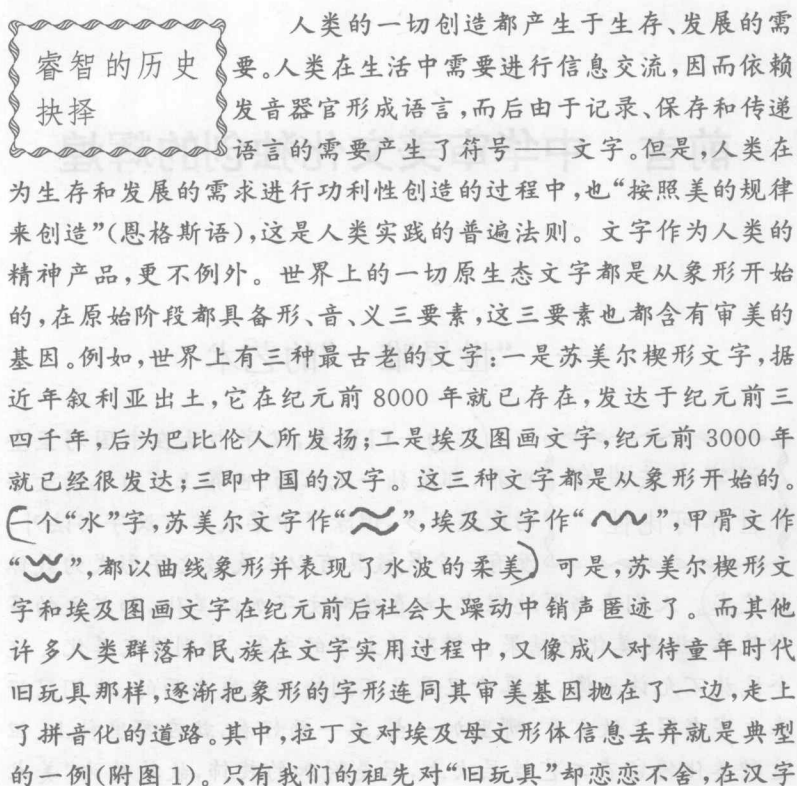 睿智的历史
抉择
人类的一切创造都产生于生存、发展的需
要。人类在生活中需要进行信息交流,因而依赖
发音器官形成语言,而后由于记录、保存和传递
语言的需要产生了符号——文字。但是,人类在
为生存和发展的需求进行功利性创造的过程中,也“按照美的规律
来创造”(恩格斯语),这是人类实践的普遍法则。文字作为人类的
精神产品,更不例外。世界上的一切原生态文字都是从象形开始
的,在原始阶段都具备形、音、义三要素,这三要素也都含有审美的
基因。例如,世界上有三种最古老的文字:一是苏美尔楔形文字,据
近年叙利亚出土,它在纪元前 8000 年就已存在,发达于纪元前三
四千年,后为巴比伦人所发扬;二是埃及图画文字,纪元前 3000 年
就已经很发达;三即中国的汉字。这三种文字都是从象形开始的。
一个“水”字,苏美尔文字作“”,埃及文字作“”,甲骨文作
“”,都以曲线象形并表现了水波的柔美。可是,苏美尔楔形文
字和埃及图画文字在纪元前后社会大躁动中销声匿迹了。而其他
许多人类群落和民族在文字实用过程中,又像成人对待童年时代
旧玩具那样,逐渐把象形的字形连同其审美基因抛在了一边,走上
了拼音化的道路。其中,拉丁文对埃及母文形体信息丢弃就是典型
的一例(附图 1)。只有我们的祖先对“旧玩具”却恋恋不舍,在汉字